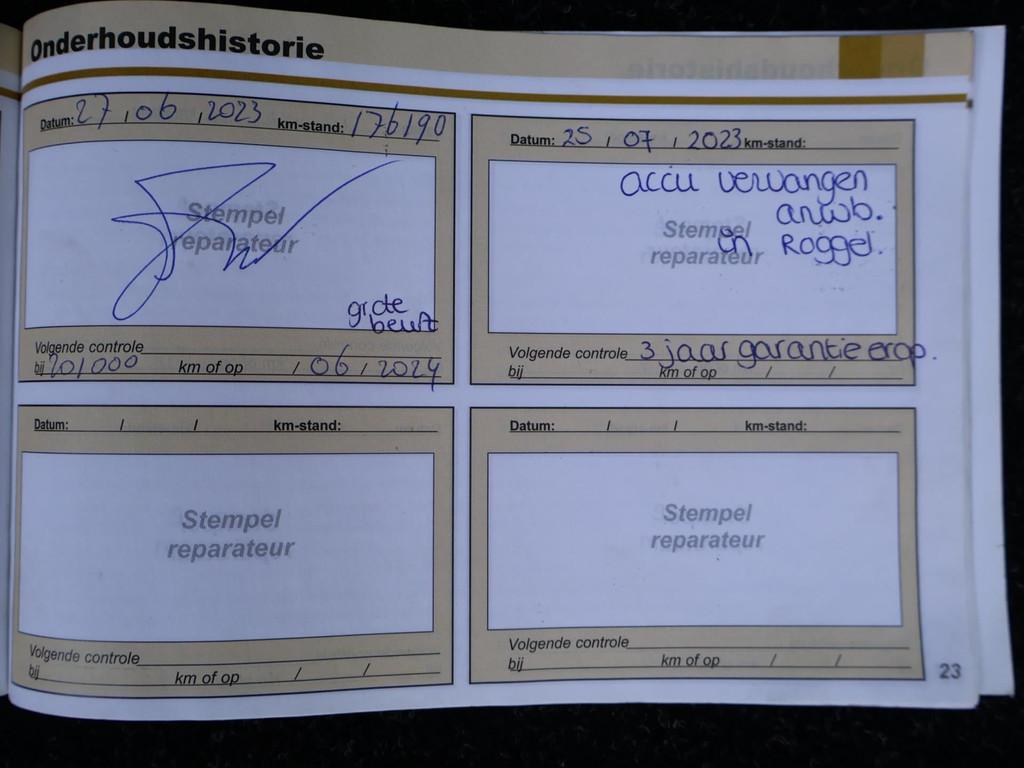 Onderhoudshistorie
Datum: 27 / 06 / 2023 km-stand: 176190
Stempel
reparateur
grote
beurt
Volgende controle
bij 201000 km of op / 06 / 2024
Datum: 25 / 07 / 2023 km-stand:
accu vervangen
anwb.
Stempel
in Roggel.
reparateur
Volgende controle 3 jaar garantie erop.
bij km of op / /
Datum: / / km-stand:
Stempel
reparateur
Volgende controle
bij km of op / /
Datum: / / km-stand:
Stempel
reparateur
Volgende controle
bij km of op / /
23